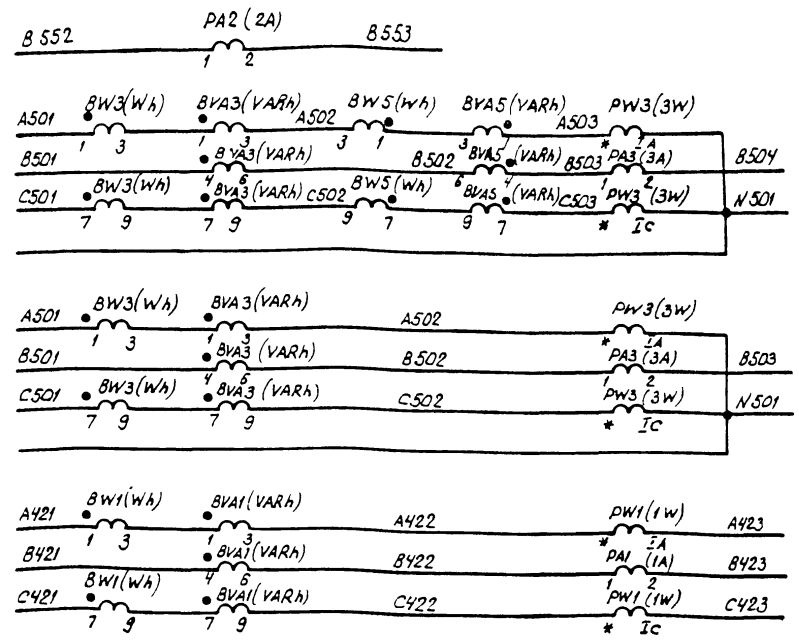 B552 PA2(2A) B553
1 2
BW3(Wh) BVA3(VARh) BW5(Wh) BVA5(VARh) PW3(3W)
A501 A502 A503
1 3 1 3 3 1 3 1 * IA
B501 BVA3(VARh) B502 BVA5(VARh) B503 PA3(3A) B504
4 6 6 4 1 2
C501 BW3(Wh) BVA3(VARh) C502 BW5(Wh) BVA5(VARh) C503 PW3(3W) N501
7 9 7 9 9 7 9 7 * IC
A501 BW3(Wh) BVA3(VARh) A502 PW3(3W)
1 3 1 3 * IA
B501 BVA3(VARh) B502 PA3(3A) B503
4 6 1 2
C501 BW3(Wh) BVA3(VARh) C502 PW3(3W) N501
7 9 7 9 * IC
A421 BW1(Wh) BVA1(VARh) A422 PW1(1W) A423
1 3 1 3 * IA
B421 BVA1(VARh) B422 PA1(1A) B423
4 6 1 2
C421 BW1(Wh) BVA1(VARh) C422 PW1(1W) C423
7 9 7 9 * IC